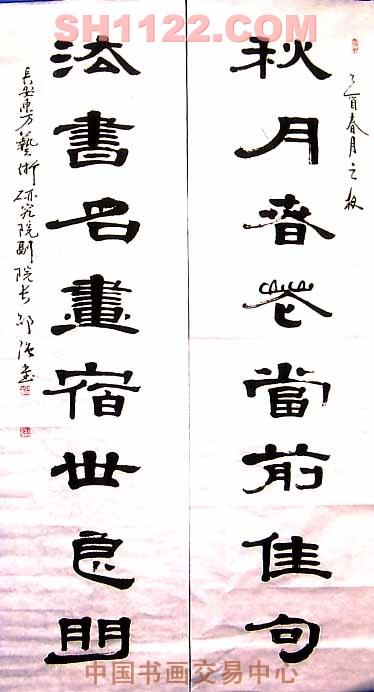 SH1122.COM
乙酉春月之
秋月春花當前佳句
法書名畫宿世良朋
長安東方藝術研究院副院長
中国书画交易中心